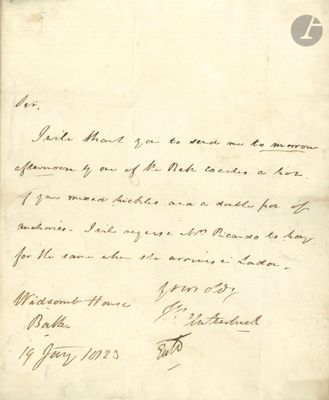 Sir,
I will thank you to send me to morrow
afternoon by one of the Bath coaches a box
of your mixed pickles and a double pot of
anchovies. I will request Mrs Ricardo to pay
for the same when she arrives in London.
Yours Obdy
Widcomb House
Clutterbuck
Bath
19 Jany 1823